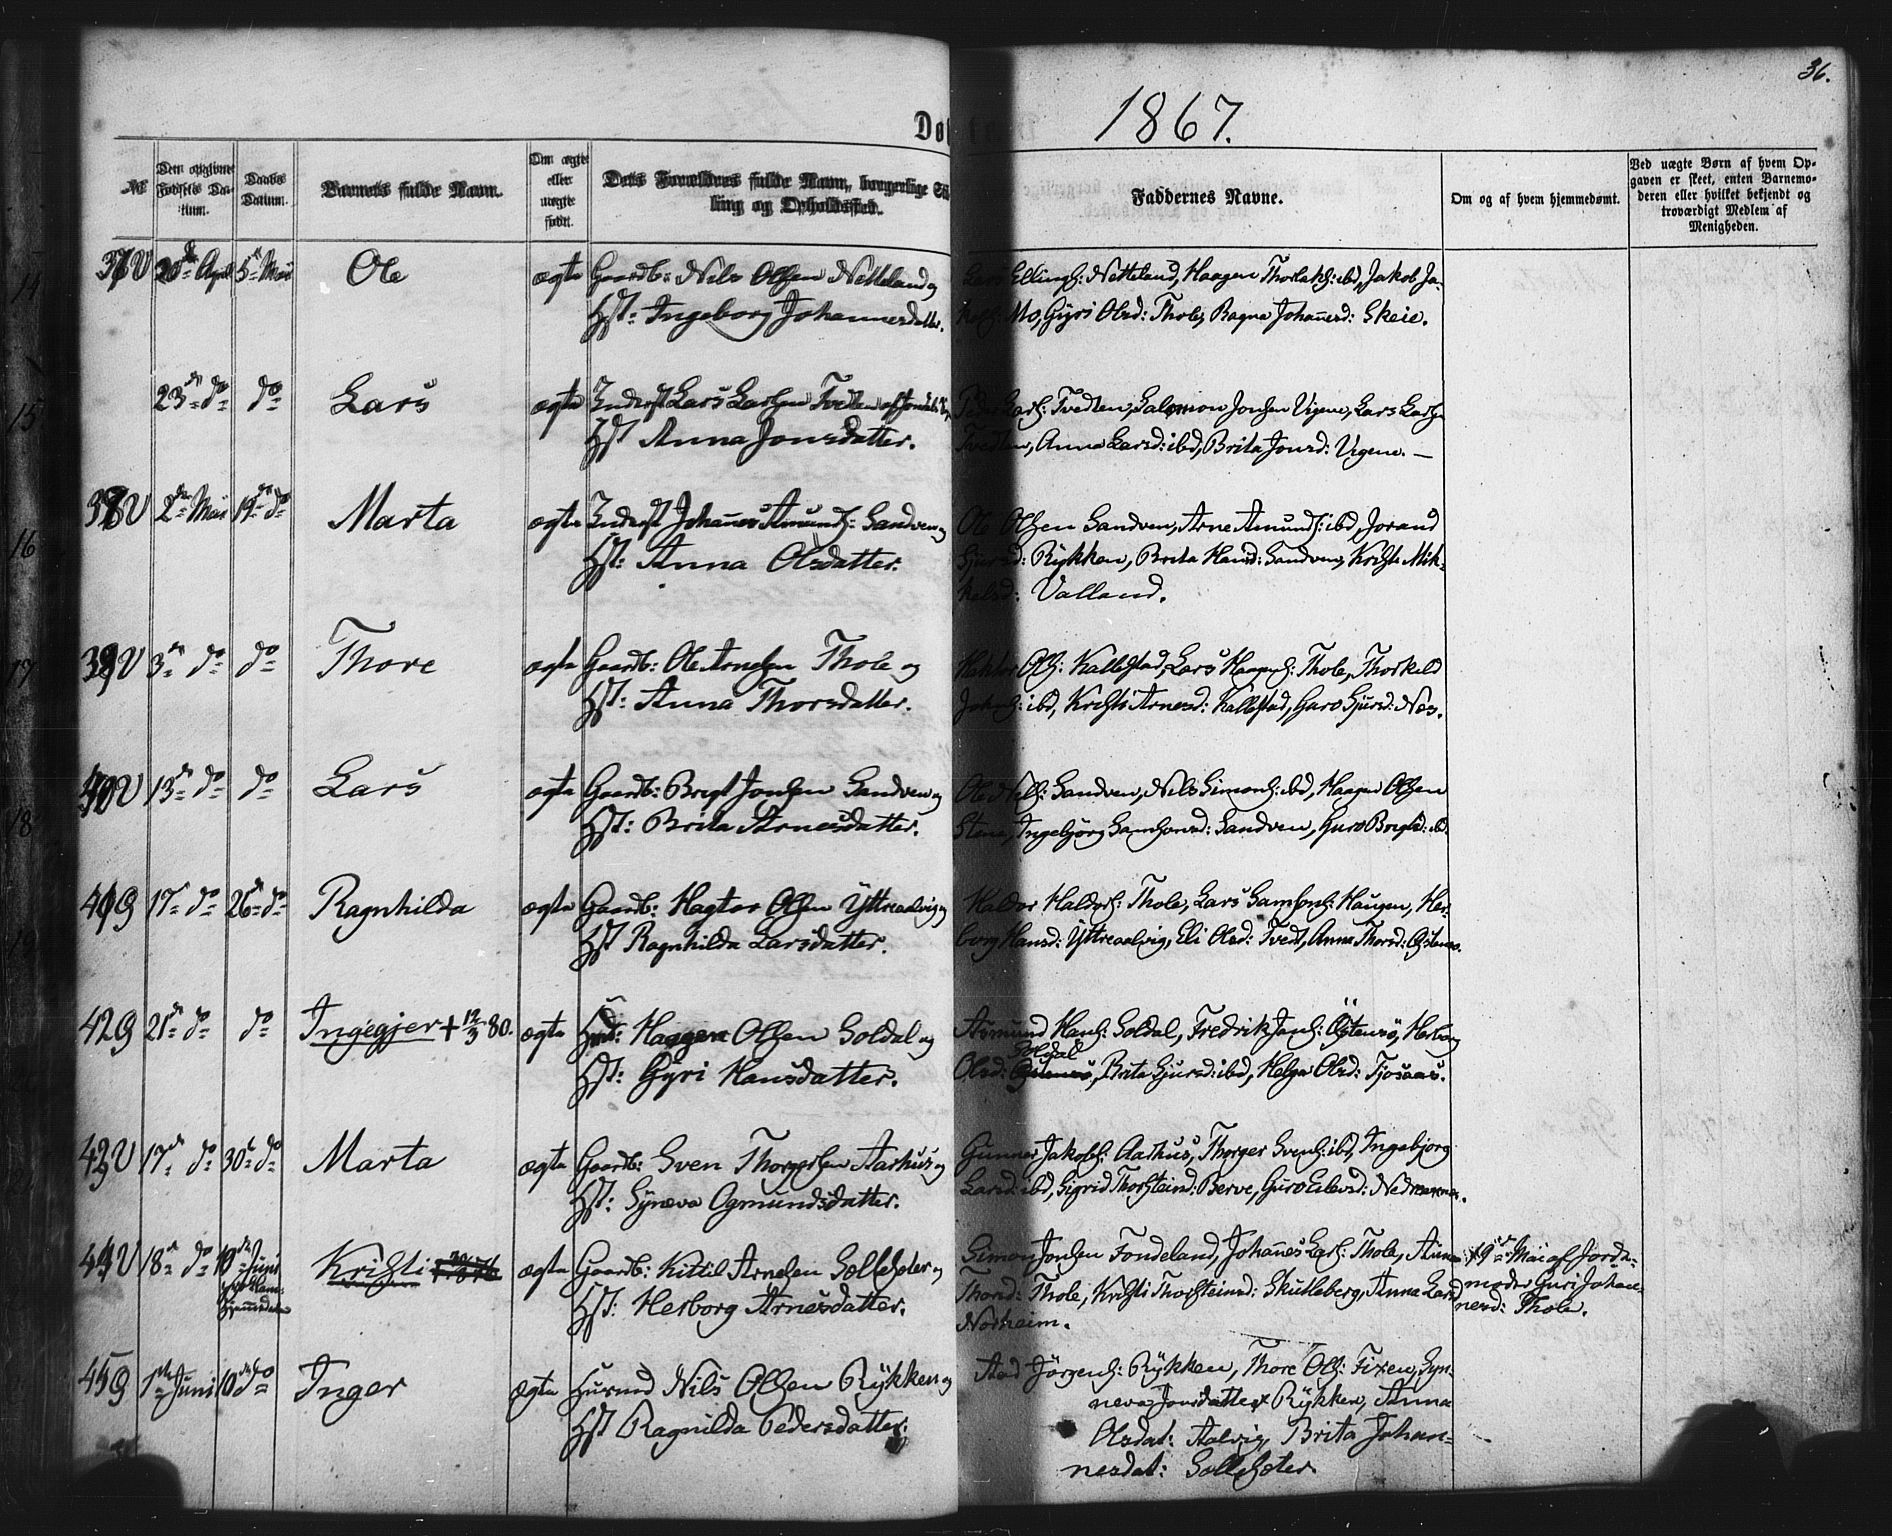 36.
1867.
Døb
№
Den opgivne Fødsels Datum.
Daabs Datum.
Barnets fulde Navn.
Om ægte eller uægte født.
Dets Forældres fulde Navn, borgerlige Stilling og Opholdssted.
Faddernes Navne.
Om og af hvem hjemmedøbt.
Ved uægte Børn af hvem Opgaven er skeet, enten Barnemoderen eller hvilket bekjendt og troværdigt Medlem af Menigheden.
14
20de April 5te Mai Ole ægte Gaardb: Nils Olsen Netteland og
Hst: Ingeborg Johannesdatter.
Lars Ellings: Netteland, Haagen Thorlaks: ibd, Jakob Ja-
kobs: Mo, Gyri Olsd: Thole, Ragna Johannesd: Skeie.
15
23de do do Lars ægte Inderst Lars Larsen Tvedten
Hst Anna Jonsdatter.
Peder Lars: Tvedten, Salomon Jonsen Vigene, Lars Larsen
Tvedten, Anna Larsd: ibd, Brita Jonsd: Vigene.
16
38 V 2den Mai 19de do Marta ægte Inderst Johannes Amunds: Sandven og
Hst: Anna Olsdatter.
Ole Olsen Sandven, Arne Amunds: ibd, Jorand
Sjursd: Rykken, Brita Hansd: Sandven, Kristi Mik-
kelsd: Valland.
17
39 V 3de do do Thore ægte Gaardb: Ole Arnesen Thole og
Hst: Anna Thorsdatter.
Hektor Ols: Kallestad, Lars Haagens: Thole, Thorkild
Johs: ibd, Kristi Arnesd: Kallestad, Guro Sjursd: Nes.
18
40 V 13de do do Lars ægte Gaardb: Brigt Jonsen Sandven og
Hst: Brita Arnesdatter.
Ole Nils: Sandven, Nils Simons: ibd, Haagen Olsen
Stene, Ingebjörg Samsonsd: Sandven, Guro Brigtsd: ibd.
19
41 G 17de do 26de do Ragnhilda ægte Gaardb: Hagtor Olsen Yttreaalvig og
Hst Ragnhilda Larsdatter.
Haldor Haldors: Thole, Lars Samsons: Haugen, Her-
borg Hansd: Yttreaalvig, Eli Olsd: Tvedt, Anna Thorsd: Østensø.
42 G 21de do do Ingegjer + 12/3 80. ægte Hmd: Haagen Olsen Soldal og
Hst: Gyri Hansdatter.
Asmund Hans: Soldal, Fredrik Jans: Östensö, Herborg
Soldal
Olsd: Östensö, Brita Sjursd: ibd, Helga Olsd: Tjosaas.
43 V 17de do 30te do Marta ægte Gaardb: Sven Thorgersen Aarhus og
Hst: Syneva Ogmundsdatter.
Gunnar Jakobs: Aarhus, Thorger Svens: ibd, Ingebjorg
Larsd: ibd, Sigrid Thorsteinsd: Berve, Guro Eilevsd:
44 V 18de do 10de Juni Kristi ægte Gaardb: Kittil Arnesen Solleseter og
Hst: Herborg Arnesdatter.
Simon Jonsen Fondeland, Johannes Lars: Thole, Anna
Thorsd: Thole, Kristi Thorsteinsd: Skutleberg, Anna Larsd
Norheim.
19de Mai af Jorda-
moder Guri Johan-
nesd: Thole.
45 G 1ste Juni 10de do Inger ægte Husmd Nils Olsen Rykken og
Hst Ragnilda Pedersdatter.
Aad Jörgens: Rykken, Thore Ols: Fixen, Syn-
neva Jonsdatter Rykken, Anna
Olsdat: Aalvig, Brita Johan-
nesdat: Solleseter.